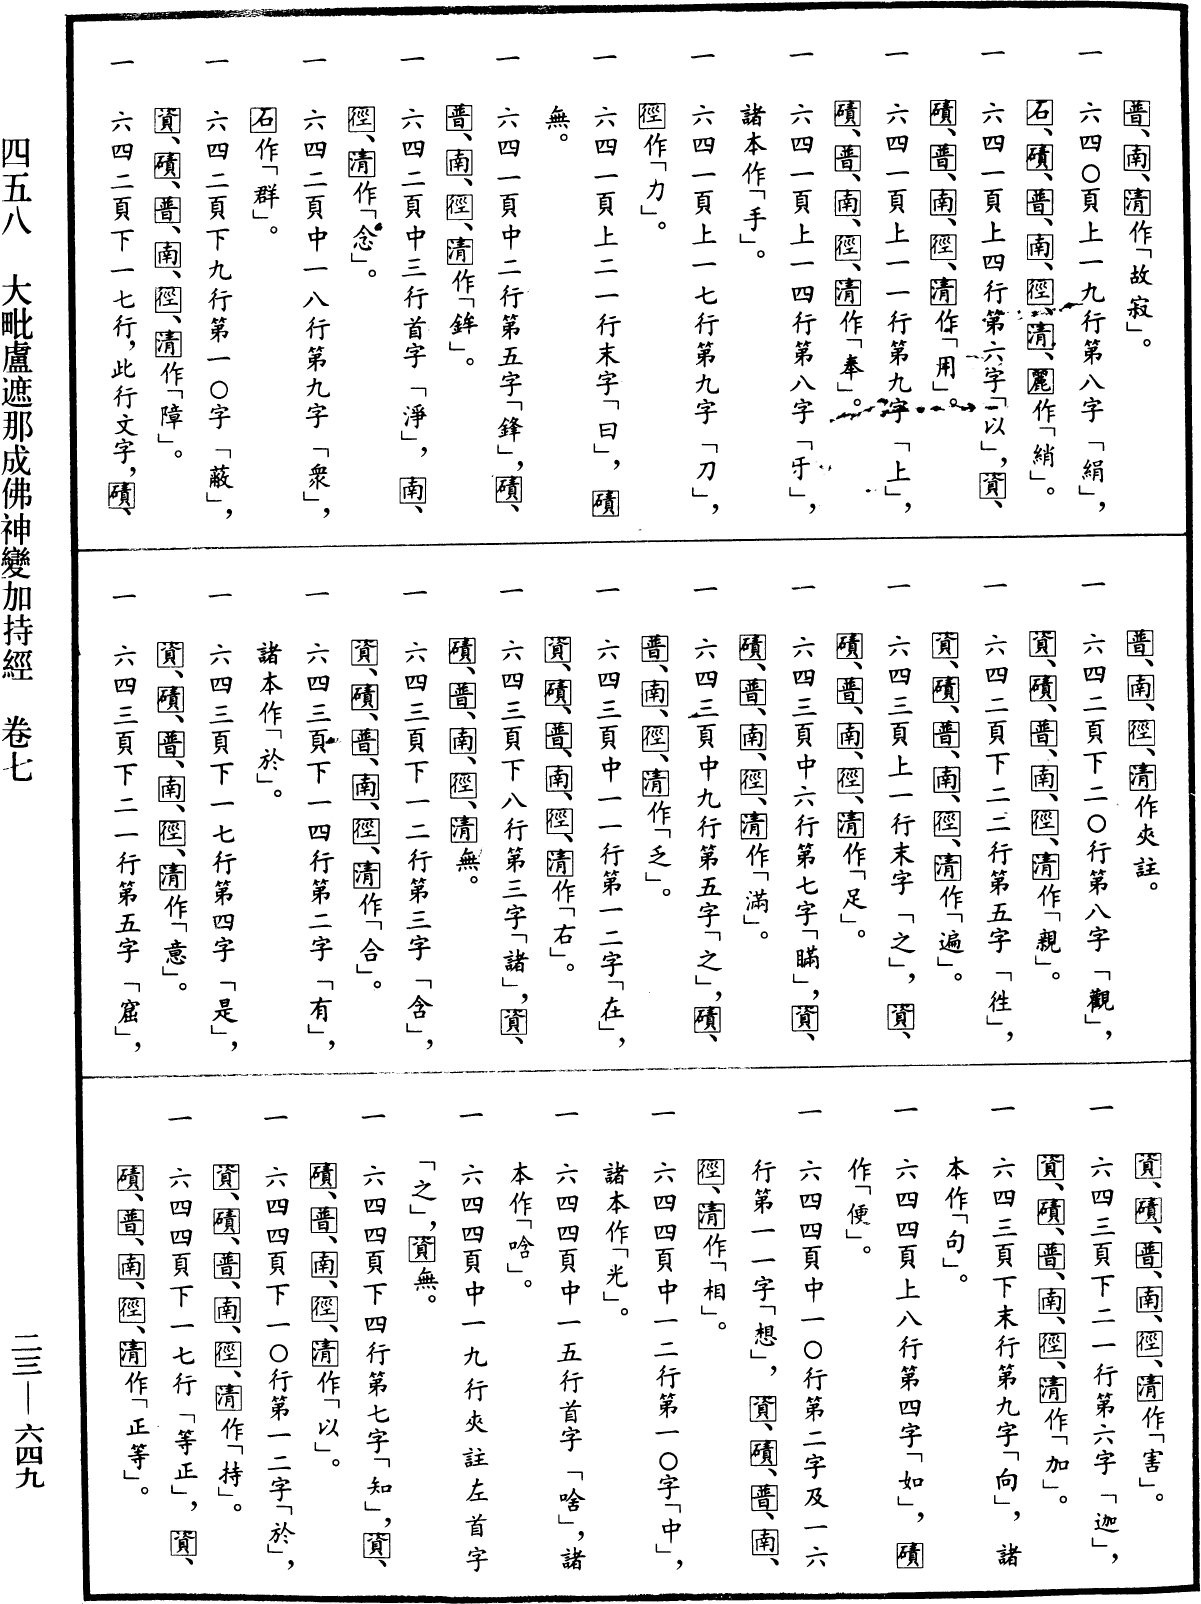 普、南、清作「故寂」。
一 六四〇頁上一九行第八字「絹」，
石、磧、普、南、徑、清、麗作「綃」。
一 六四一頁上四行第六字「以」，資、
磧、普、南、徑、清作「用」。
一 六四一頁上一一行第九字「上」，
磧、普、南、徑、清作「奉」。
一 六四一頁上一四行第八字「于」，
諸本作「手」。
一 六四一頁上一七行第九字「刀」，
徑作「力」。
一 六四一頁上二一行末字「曰」，磧
無。
一 六四一頁中二行第五字「鋒」，磧、
普、南、徑、清作「鉾」。
一 六四二頁中三行首字「淨」，南、
徑、清作「念」。
一 六四二頁中一八行第九字「衆」，
石作「群」。
一 六四二頁下九行第一〇字「蔽」，
資、磧、普、南、徑、清作「障」。
一 六四二頁下一七行，此行文字，磧、
普、南、徑、清作夾註。
一 六四二頁下二〇行第八字「觀」，
資、磧、普、南、徑、清作「親」。
一 六四二頁下二二行第五字「徃」，
資、磧、普、南、徑、清作「遍」。
一 六四三頁上一行末字「之」，資、
磧、普、南、徑、清作「足」。
一 六四三頁中六行第七字「瞞」，資、
磧、普、南、徑、清作「滿」。
一 六四三頁中九行第五字「之」，磧、
普、南、徑、清作「乏」。
一 六四三頁中一一行第一二字「在」，
資、磧、普、南、徑、清作「右」。
一 六四三頁下八行第三字「諸」，資、
磧、普、南、徑、清無。
一 六四三頁下一二行第三字「含」，
資、磧、普、南、徑、清作「合」。
一 六四三頁下一四行第二字「有」，
諸本作「於」。
一 六四三頁下一七行第四字「是」，
資、磧、普、南、徑、清作「意」。
一 六四三頁下二一行第五字「窟」，
資、磧、普、南、徑、清作「害」。
一 六四三頁下二一行第六字「迦」，
資、磧、普、南、徑、清作「加」。
一 六四三頁下末行第九字「向」，諸
本作「句」。
一 六四四頁上八行第四字「如」，磧
作「便」。
一 六四四頁中一〇行第二字及一六
行第一一字「想」，資、磧、普、南、
徑、清作「相」。
一 六四四頁中一二行第一〇字「中」，
諸本作「光」。
一 六四四頁中一五行首字「啥」，諸
本作「唅」。
一 六四四頁中一九行夾註左首字
「之」，資無。
一 六四四頁下四行第七字「知」，資、
磧、普、南、徑、清作「以」。
一 六四四頁下一〇行第一二字「於」，
資、磧、普、南、徑、清作「持」。
一 六四四頁下一七行「等正」，資、
磧、普、南、徑、清作「正等」。
四五八 大毗盧遮那成佛神變加持經 卷七
二三—六四九